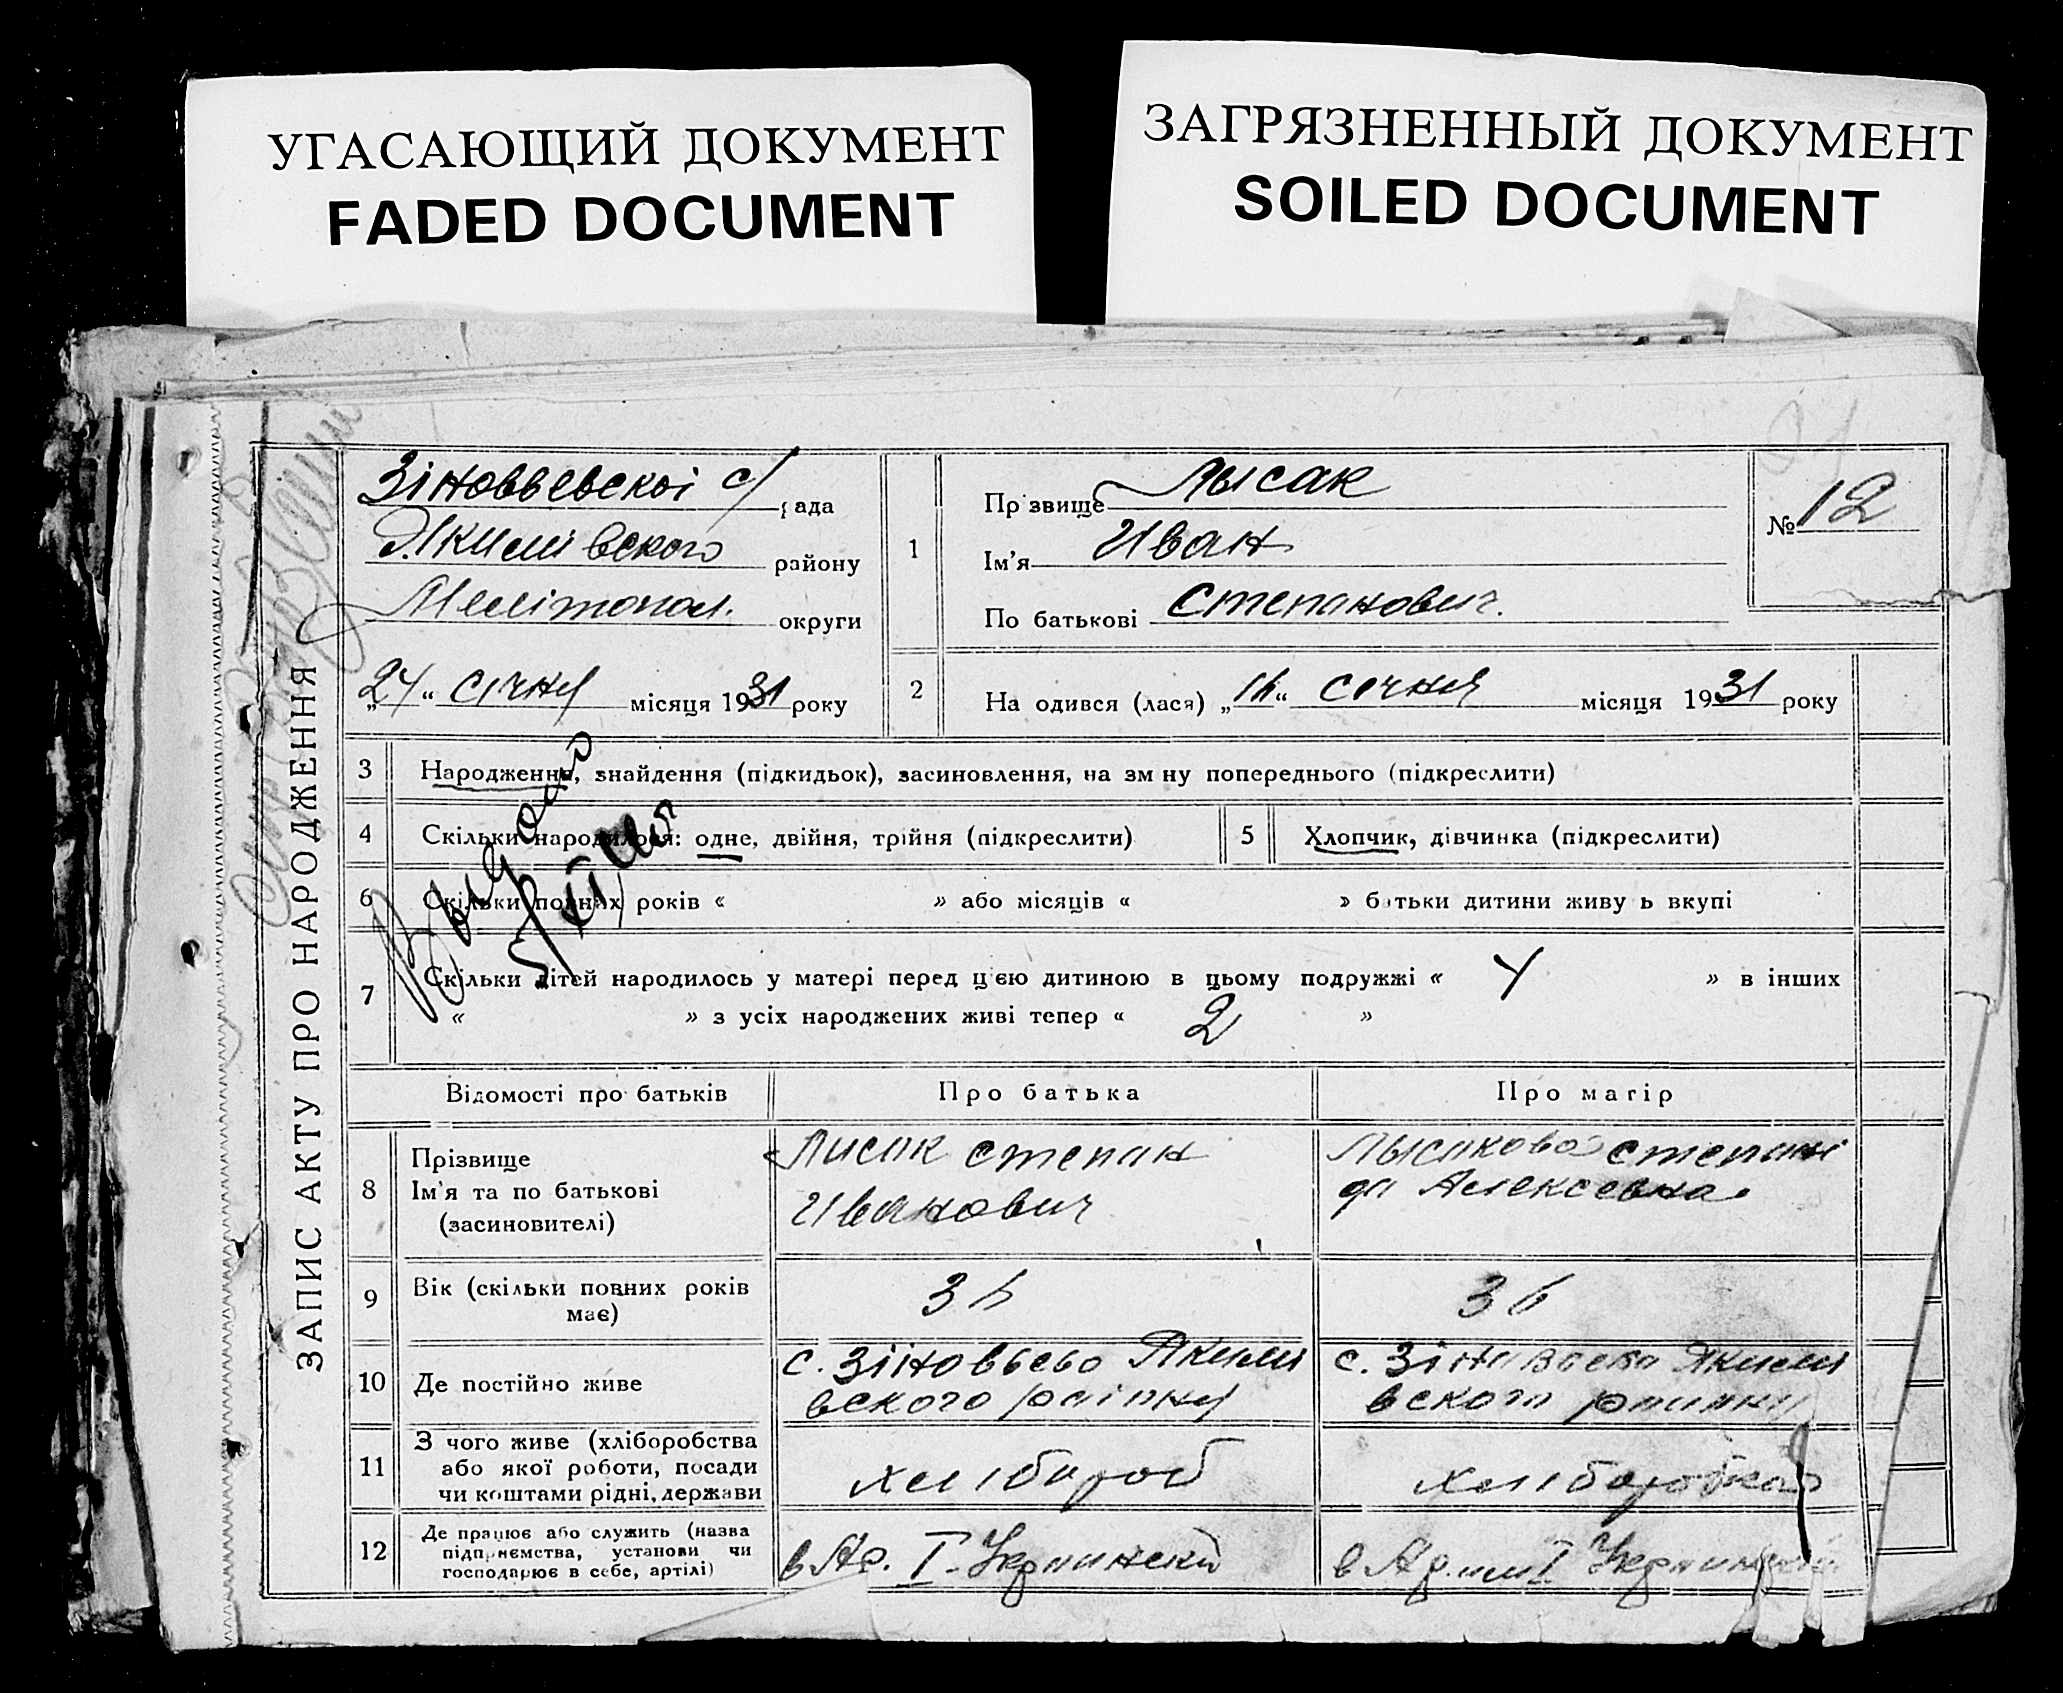 УГАСАЮЩИЙ ДОКУМЕНТ
FADED DOCUMENT
ЗАГРЯЗНЕННЫЙ ДОКУМЕНТ
SOILED DOCUMENT
ЗАПИС АКТУ ПРО НАРОДЖЕННЯ
Зіновьевскоі с/ рада
Якимівского району
Мелітопол. округи
„24“ січня місяця 1931 року
1
Пр звище Лысак
Ім'я Иван
По батькові Степанович.
№ 12
2
На одився (лася) „16“ січня місяця 1931 року
3 Народження, знайдення (підкидьок), засиновлення, на зм ну попереднього (підкреслити)
4 Скільки народилося: одне, двійня, трійня (підкреслити)
5 Хлопчик, дівчинка (підкреслити)
6 Скільки повних років « » або місяців « » батьки дитини живу ь вкупі
Выдано
7 Скільки дітей народилось у матері перед цією дитиною в цьому подружжі « 4 » в інших
« » з усіх народжених живі тепер « 2 »
Відомості про батьків Про батька Про матір
8 Прізвище
Ім'я та по батькові
(засиновителі)
Лисак Степан
Иванович
Лысакова Степани
да Алексевна
9 Вік (скільки повних років
має)
36
36
10 Де постійно живе
с. Зіновьево Якими
вского раіону
с. Зіновьево Якими
вского
11 З чого живе (хліборобства
або якої роботи, посади
чи коштами рідні, держави
хлібороб
хліборобка
12 Де працює або служить (назва
підпрнємства, установи чи
господарює в себе, артілі)
в Ар. I
в Ар I